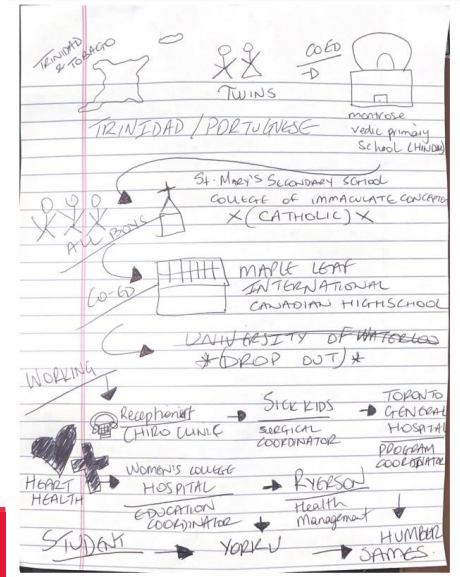 TRINIDAD
& TOBAGO
COED
TWINS
montrose
vedic primary
School (HINDU)
TRINIDAD / PORTUGUESE
St. MARY'S SECONDARY SCHOOL
COLLEGE OF IMMACULATE CONCEPTION
X (CATHOLIC) X
ALL BOYS
CO-ED
MAPLE LEAF
INTERNATIONAL
CANADIAN HIGHSCHOOL
UNIVERSITY OF WATERLOO
*(DROP OUT)*
WORKING
Receptionist
CHIRO CLINIC
SICK KIDS
SURGICAL
COORDINATOR
TORONTO
GENERAL
HOSPITAL
PROGRAM
COORDINATOR
HEART
HEALTH
WOMEN'S COLLEGE
HOSPITAL
EDUCATION
COORDINATOR
RYERSON
Health
Management
STUDENT
YORK U
HUMBER
JAMES